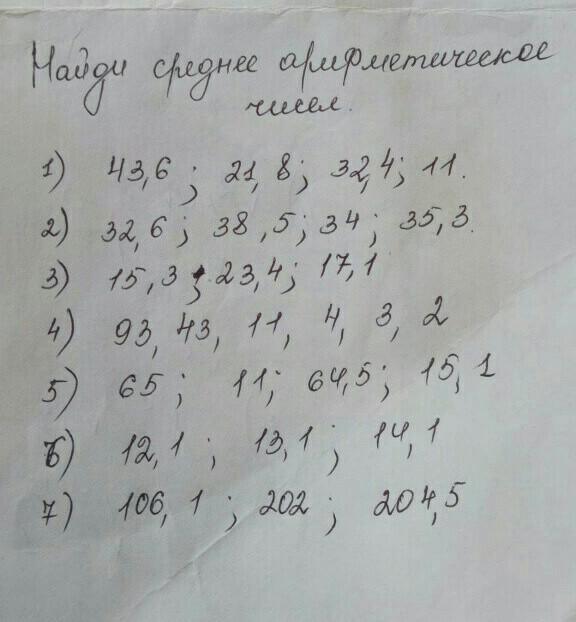 Найди среднее арифметическое
чисел.
1) 43,6; 21,8; 32,4; 11.
2) 32,6; 38,5; 34; 35,3.
3) 15,3; 23,4; 17,1
4) 93, 43, 11, 4, 3, 2
5) 65; 11; 64,5; 15,1
6) 12,1; 13,1; 14,1
7) 106,1; 202; 204,5